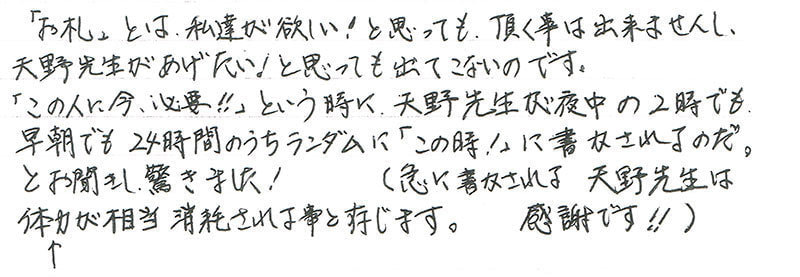 「お札」とは、私達が欲しい!と思っても、頂く事は出来ませんし、
天野先生があげたい!と思っても出てこないのです。
「この人に今、必要!!」という時に、天野先生が夜中の2時でも、
早朝でも24時間のうちランダムに「この時!」に書かされるのだ。
とお聞きし、驚きました!　(急に書かされる 天野先生は
体力が相当消耗される事と存じます。　感謝です!!)
↑